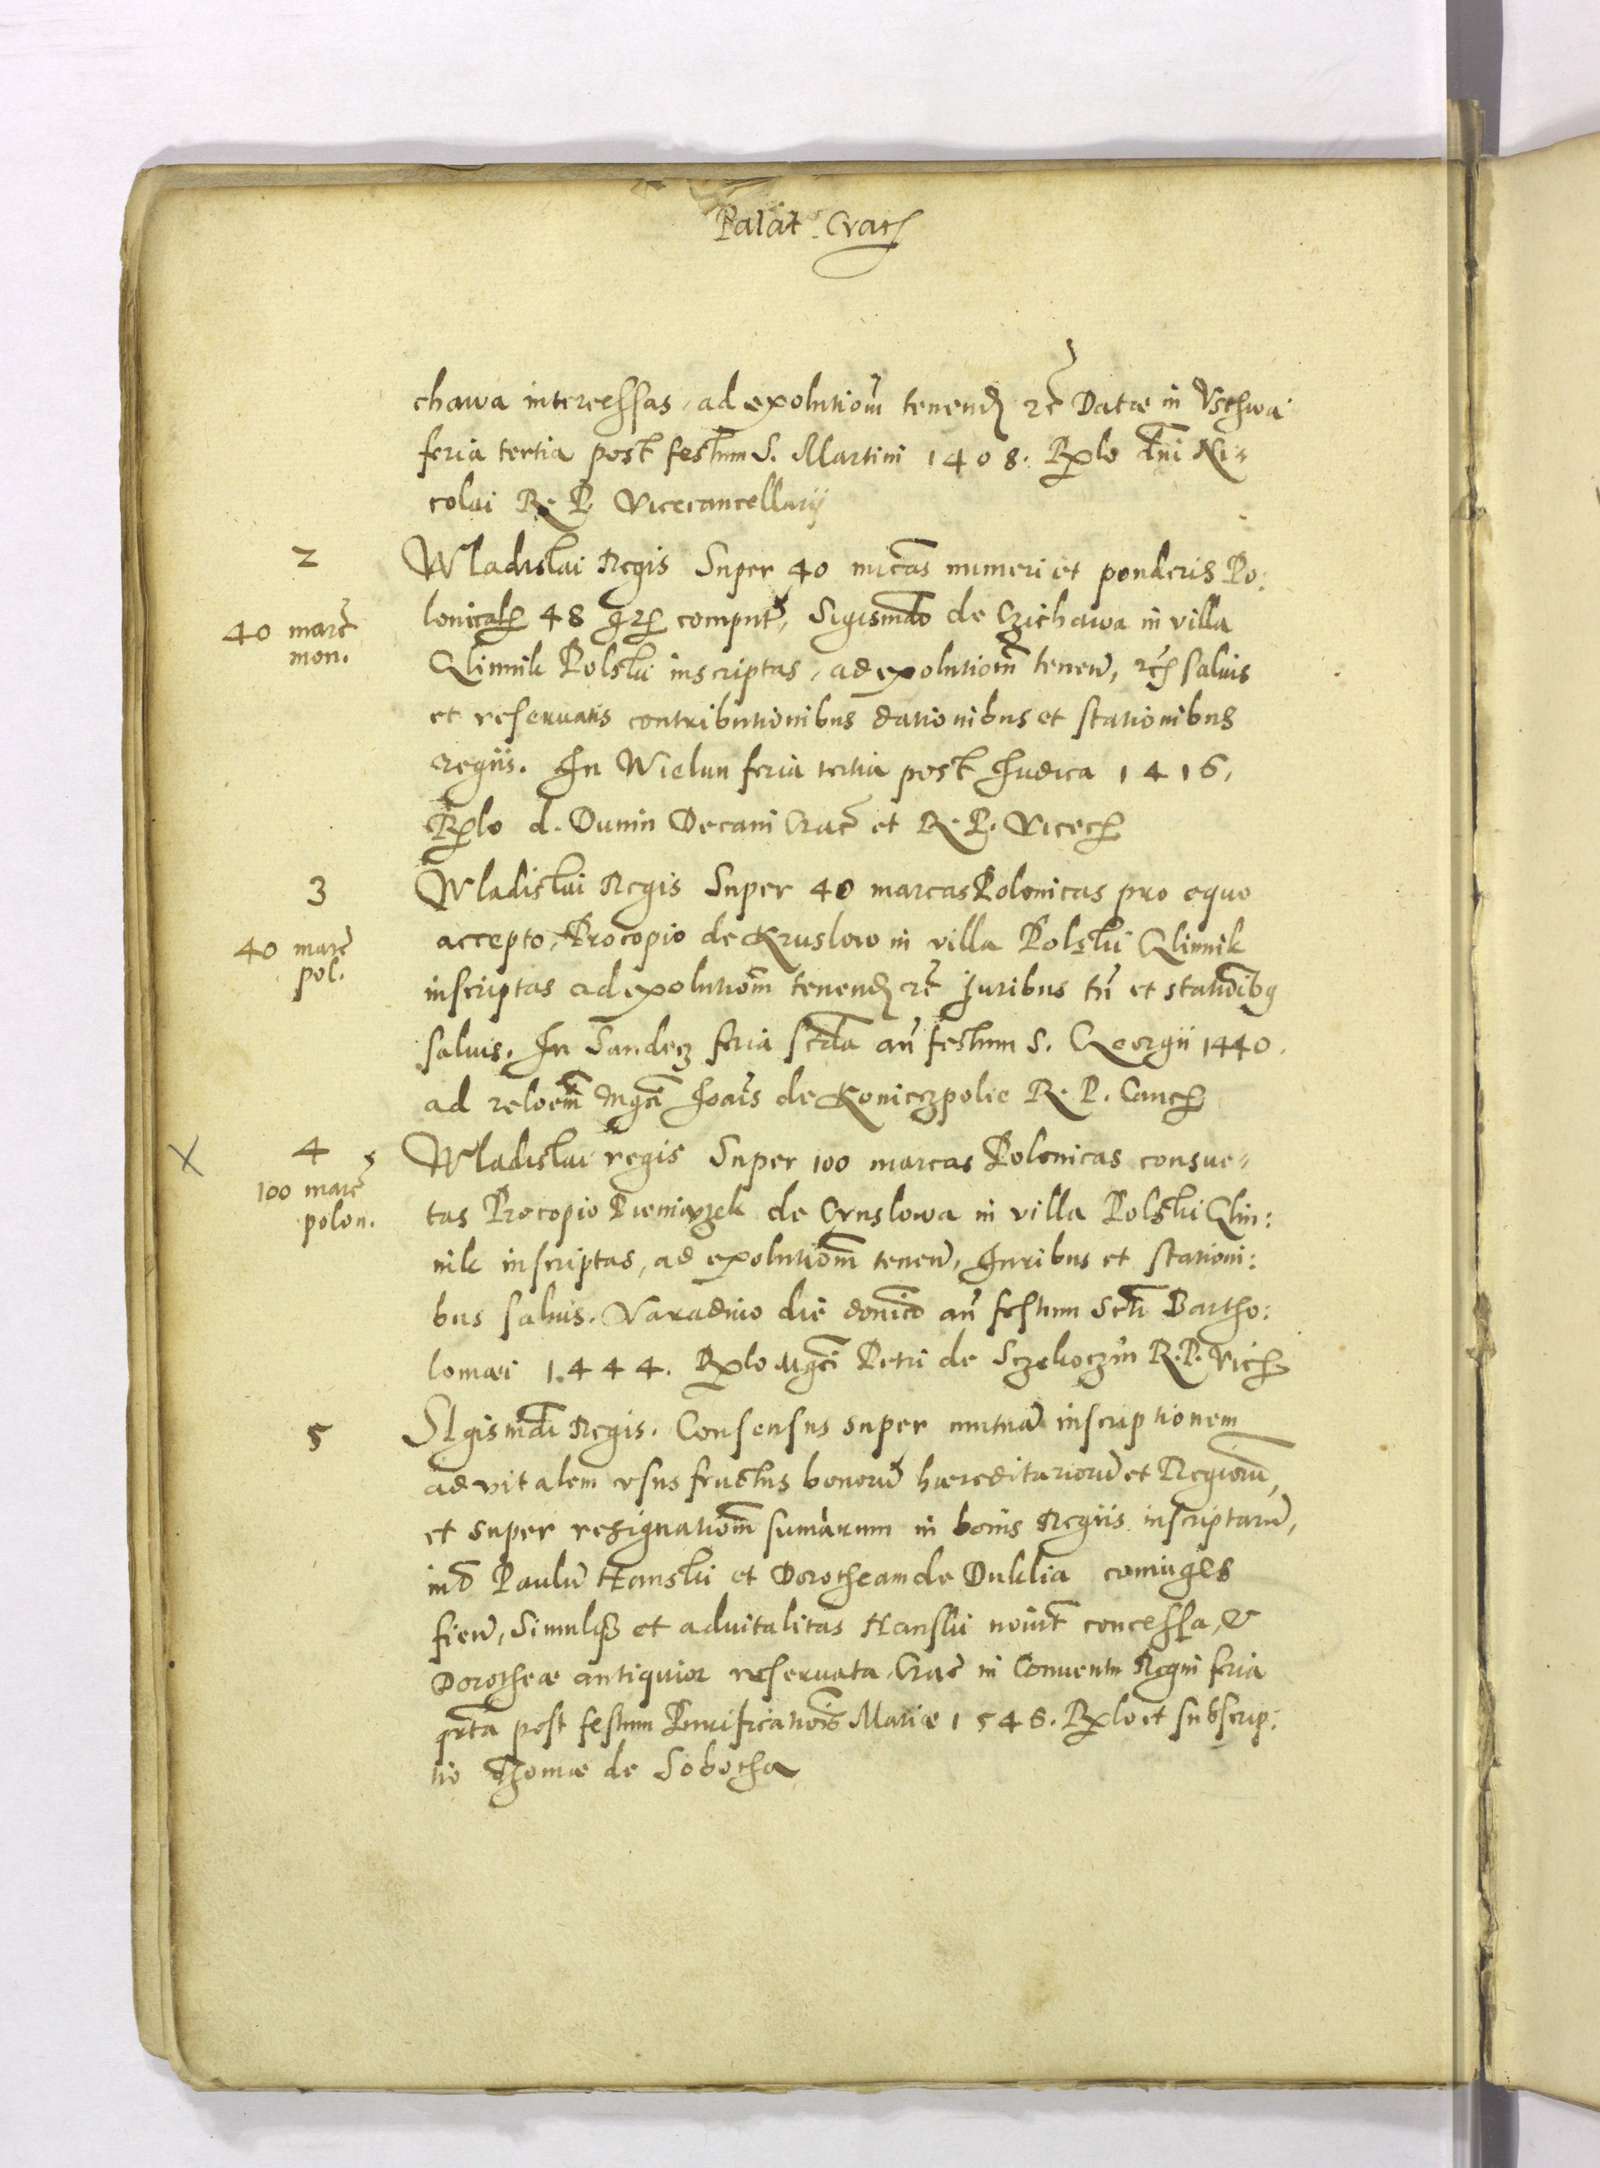 Palat. Crac
chawa intercessas, ad exolutiom tenend etc Datæ in Vschwa
feria tertia post festum S. Martini 1408. Rlo dni Ni-
colai R. P. Vicecancellarij
2
Wladislai Regis Super 40 mrcas numeri et ponderis Po:
40 marc
mon.
lonical 48 gr comput, Sigismdo de Czichawa in villa
Glinnik Polski inscriptas, ad exolutiom tenen, etc saluis
et reseruatis contributionibus dationibus et stationibus
regiis. In Wielun feria tertia post Judica 1416,
Rlo d. Dunin Decani Crac et R. P. Vicec
3
Wladislai Regis Super 40 marcas Polonicas pro equo
40 marc
pol.
accepto, Procopio de Kruslow in villa Polski Glinnik
inscriptas ad exolutiom tenend etc Juribus tn et stationibq
saluis. In Sandecz feria scda an festum S. Georgii 1440.
ad reloem Mgci Joais de Konieczpolie R. P. Canc
4
Wladislai regis Super 100 marcas Polonicas consue-
100 marc
polon.
tas Procopio Pieniązek de Cruslowa in villa Polski Glin:
nik inscriptas, ad exolutiom tenen, Juribus et stationi:
bus saluis. Varadino die donico an festum Scti Bartho:
lomæi 1.444. Rlo Mgci Petri de Sczekoczin R. P. Vic
5
Sigismdi Regis. Consensus super mutua inscriptionem
aduitalem vsus fructus bonoru hæreditarioru et Regioru,
et super resignatiom sumarum in bonis Regiis inscriptaru,
int Paulu Hanski et Dorotheam de Duklia coniuges
fien, Simulq et aduitalitas Hanski nouit concessa, &
Dorotheæ antiquior reseruata, Crac in Conuentu Regni feria
qrta post festum Purificatiois Mariæ 1546. Rlo et subscrip:
tio Thomæ de Sobotha